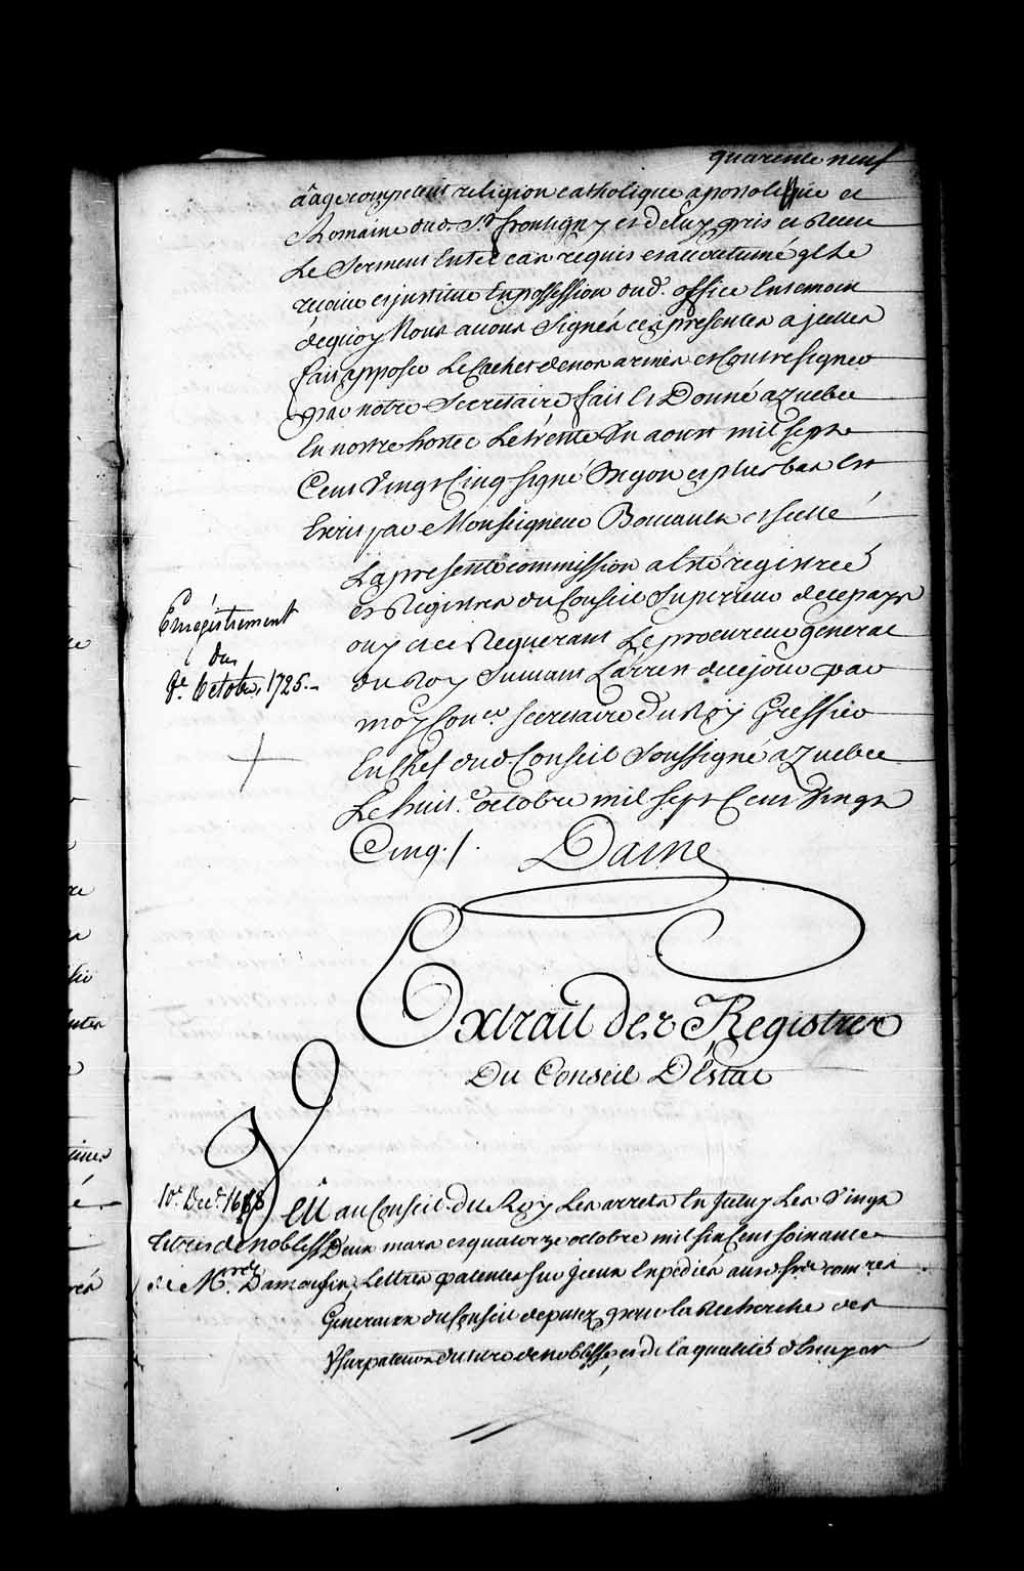 quarente neuf
d'age competent religion catholique apostolique et
Romaine dud. Sr. frontigny et deluy pris et Receu
Le Serment Entel cas requis et accoutumé qlle
recoive et jnstitue En possession dud. office En temoin
dequoy Nous avons Signés ces presentes a jcelles
fait apposer Le Cachet de nos armes et Contresigner
par notre Secretaire fait et Donné a Quebec
En nostre hostel Le trente Un aoust mil Sept
Cent Vingt Cinq signé Begon et plus bas Est
Ecrit par Monseigneur et scellé
La presente commission a Esté registrée
Es Registres du Conseil Superieur de ce pays
ouy et ce Requerant Le procureur general
du Roy Suivant L'arrest de ce jour par
moy Coner Secretaire du Roy Greffier
En Chef dud. Conseil Soussigné a Quebec
Le huit.e octobre mil Sept Cent Vingt
Cinq./. Daine
Enregistrement
du
8e. Octobre, 1725.-
Extrait des Registres
Du Conseil D'Estat
Veu au Conseil du Roy Les arrests En Jceluy Les Vingt
Deux mars et quatorze octobre mil six Cent soixante
Lettres patentes sur Jceux Expediés aux Srs. comres
Generaux du Conseil deputez pour la Recherche des
Vsurpateurs du titre de noblesse et de la qualité d'Ecuyer
10e. Decr. 1668
Titres de noblesse
de Mr. Damours